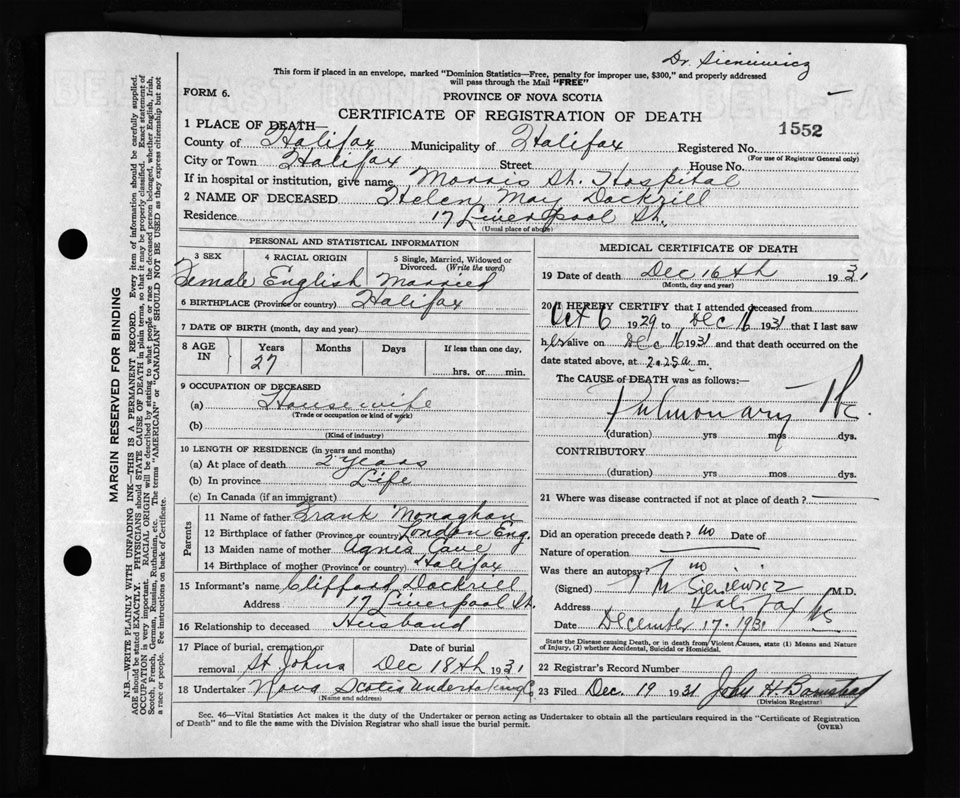 Dr. Sieniewicz
This form if placed in an envelope, marked "Dominion Statistics—Free, penalty for improper use, $300," and properly addressed
will pass through the Mail "FREE"
FORM 6.
PROVINCE OF NOVA SCOTIA
CERTIFICATE OF REGISTRATION OF DEATH
1552
1 PLACE OF DEATH—
County of Halifax Municipality of Halifax Registered No.
(For use of Registrar General only)
City or Town Halifax Street House No.
If in hospital or institution, give name Morris St. Hospital
2 NAME OF DECEASED Helen May Dockrill
Residence 17 Liverpool St.
(Usual place of abode)
PERSONAL AND STATISTICAL INFORMATION
3 SEX 4 RACIAL ORIGIN 5 Single, Married, Widowed or Divorced. (Write the word)
Female English Married
6 BIRTHPLACE (Province or country) Halifax
7 DATE OF BIRTH (month, day and year)
8 AGE IN Years Months Days If less than one day,
27 hrs. or min.
9 OCCUPATION OF DECEASED
(a) Housewife
(Trade or occupation or kind of work)
(b)
(Kind of industry)
10 LENGTH OF RESIDENCE (in years and months)
(a) At place of death 2 years
(b) In province Life
(c) In Canada (if an immigrant)
Parents
11 Name of father Frank Monaghan
12 Birthplace of father (Province or country) London Eng.
13 Maiden name of mother Agnes Cave
14 Birthplace of mother (Province or country) Halifax
15 Informant's name Clifford Dockrill
Address 17 Liverpool St.
16 Relationship to deceased Husband
17 Place of burial, cremation or removal St Johns Date of burial Dec 18th 1931
18 Undertaker Nova Scotia Undertaking Co
(Name and address)
MEDICAL CERTIFICATE OF DEATH
19 Date of death Dec 16th 1931
(Month, day and year)
20 I HEREBY CERTIFY that I attended deceased from
Oct 6 1929 to Dec 16 1931 that I last saw
h er alive on Dec 16 1931 and that death occurred on the
date stated above, at 2.25 a m.
The CAUSE of DEATH was as follows:—
Pulmonary Tbc.
(duration) yrs mos dys.
CONTRIBUTORY
(duration) yrs mos dys.
21 Where was disease contracted if not at place of death?
Did an operation precede death? no Date of
Nature of operation
Was there an autopsy? no
(Signed) T M Sieniewicz M.D.
Address Halifax NS
Date December 17. 1931
State the Disease causing Death, or in death from Violent Causes, state (1) Means and Nature
of Injury, (2) whether Accidental, Suicidal or Homicidal.
22 Registrar's Record Number
23 Filed Dec. 19 1931 John H. Barnstead
(Division Registrar)
Sec. 46—Vital Statistics Act makes it the duty of the Undertaker or person acting as Undertaker to obtain all the particulars required in the "Certificate of Registration
of Death" and to file the same with the Division Registrar who shall issue the burial permit.
(OVER)
MARGIN RESERVED FOR BINDING
N.B.—WRITE PLAINLY WITH UNFADING INK—THIS IS A PERMANENT RECORD. Every item of information should be carefully supplied.
AGE should be stated EXACTLY. PHYSICIANS should STATE CAUSE OF DEATH in plain terms, so that it may be properly classified. Exact statement of
OCCUPATION is very important. RACIAL ORIGIN will be described by stating to what people or race the deceased person belonged, whether English, Irish,
Scotch, French, German, Russian, Ruthenian, etc. The terms "AMERICAN" or "CANADIAN" SHOULD NOT BE USED as they express citizenship but not
a race or people. See instructions on back of Certificate.